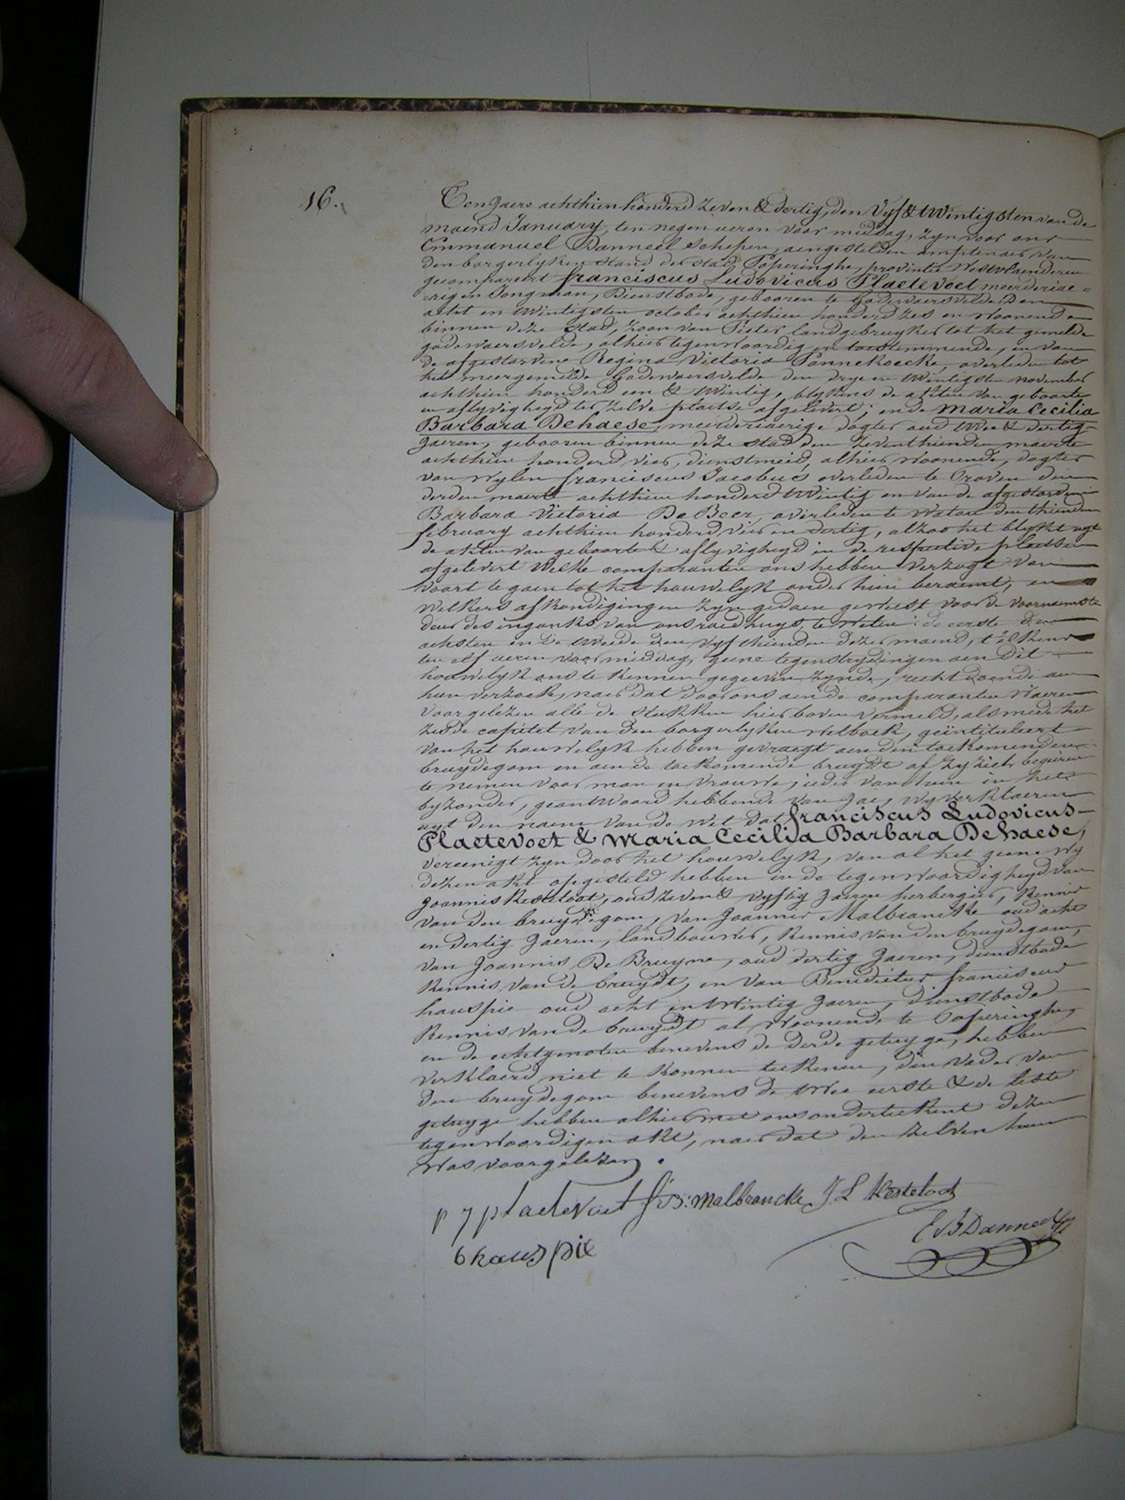 16.
Ten Jaere achthien honderd zeven & dertig, den Vyf & twintigsten van de
maend January, ten negen ueren voor middag, zyn voor ons
Emmanuel Danneel Schepen, aengestelden amptenaer van
den borgerlyken stand der stad Poperinghe, provintie Westvlaenderen
gecompareert franciscus Ludovicus Plaetevoet meerderjae-
rigen Jongman, Dienstbode, gebooren te Godewaersvelde den
acht en twintigsten october achthien honderd zes en woonende
binnen deze stad, zoon van Pieter landgebruyker tot het gemelde
godewaersvelde, alhier tegenwoordig en toestemmende, en van
de afgestorvene Regina Victoria Pannekoecke, overleden tot
het meergemelde Godewaersvelde den drye en twintigsten november
achthien honderd een & twintig, blykens de akten van geboorte
en aflyvigheyd ter zelve plaetse afgelevert; en de Maria Cecilia
Barbara Dehaese, meerderjaerige dogter oud twee & dertig
Jaeren, gebooren binnen deze stad den zeventhienden maerte
achthien honderd vier, dienstmeid, alhier woonende, dogter
van wylen franciscus Jacobus overleden te Proven den
derden maerte achthien honderd twintig en van de afgestorvene
Barbara Victoria De Beer, overleden te Watou den thienden
february achthien honderd vier en dertig, alzoo het blykt uyt
de akten van geboorte & aflyvigheyd in de respective plaetsen
afgelevert Welke comparanten ons hebben verzogt van
voort te gaen tot het houwelyk onder hun beraemt, en
welkers afkondigingen zyn gedaen geweest voor de voornaemste
deur des ingangs van ons raedhuys, te weten: de eerste den
achsten en de tweede den vyfthienden dezer maend, t'elkens
ten elf ueren voor middag, geene tegenstrydingen aen dit
houwelyk ons te kennen gegeven zynde, recht doende aen
hun verzoek, naer dat door ons aen de comparanten waeren
voorgelezen alle de stukken hierboven vermeld, alsmede het
zesde capitel van den borgerlyken wetboek, geïntituleert
van het houwelyk hebben gevraegt aen den toekomenden
bruydegom en aen de toekomende bruydt of zy zich begeeren
te nemen voor man en vrouwe; ieder van hun in het
byzonder, geantwoord hebbende van Jae, wy verklaeren
uyt den naem van de wet dat franciscus Ludovicus
Plaetevoet & Maria Cecilia Barbara Dehaese,
vereenigt zyn door het houwelyk, van al het geene wy
dezen akt opgesteld hebben in de tegenwoordigheyd van
Joannis Kesteloot, oud zeven & vyftig Jaeren herbergier, Kennis
van den bruydegom, van Joannes Malbrancke oud acht
en dertig Jaeren, landbouwer, Kennis van den bruydegom,
van Joannis De Bruyne, oud dertig Jaeren, dienstbode
Kennis van de bruydt, en van Benedictus franciscus
hauspie oud acht en twintig Jaeren, dienstbode
Kennis van de bruydt al woonende te Poperinghe,
en de echtgenoten benevens de derde getuyge, hebben
verklaerd niet te konnen teekenen, den vader van
den bruydegom benevens de twee eerste & de leste
getuyge hebben alhier met ons onderteekent dezen
tegenwoordigen akt, naer dat den zelven hun
was voorgelezen.
p j plaetevoet Malbrancke J. L Kesteloot
b hauspie E Danneel